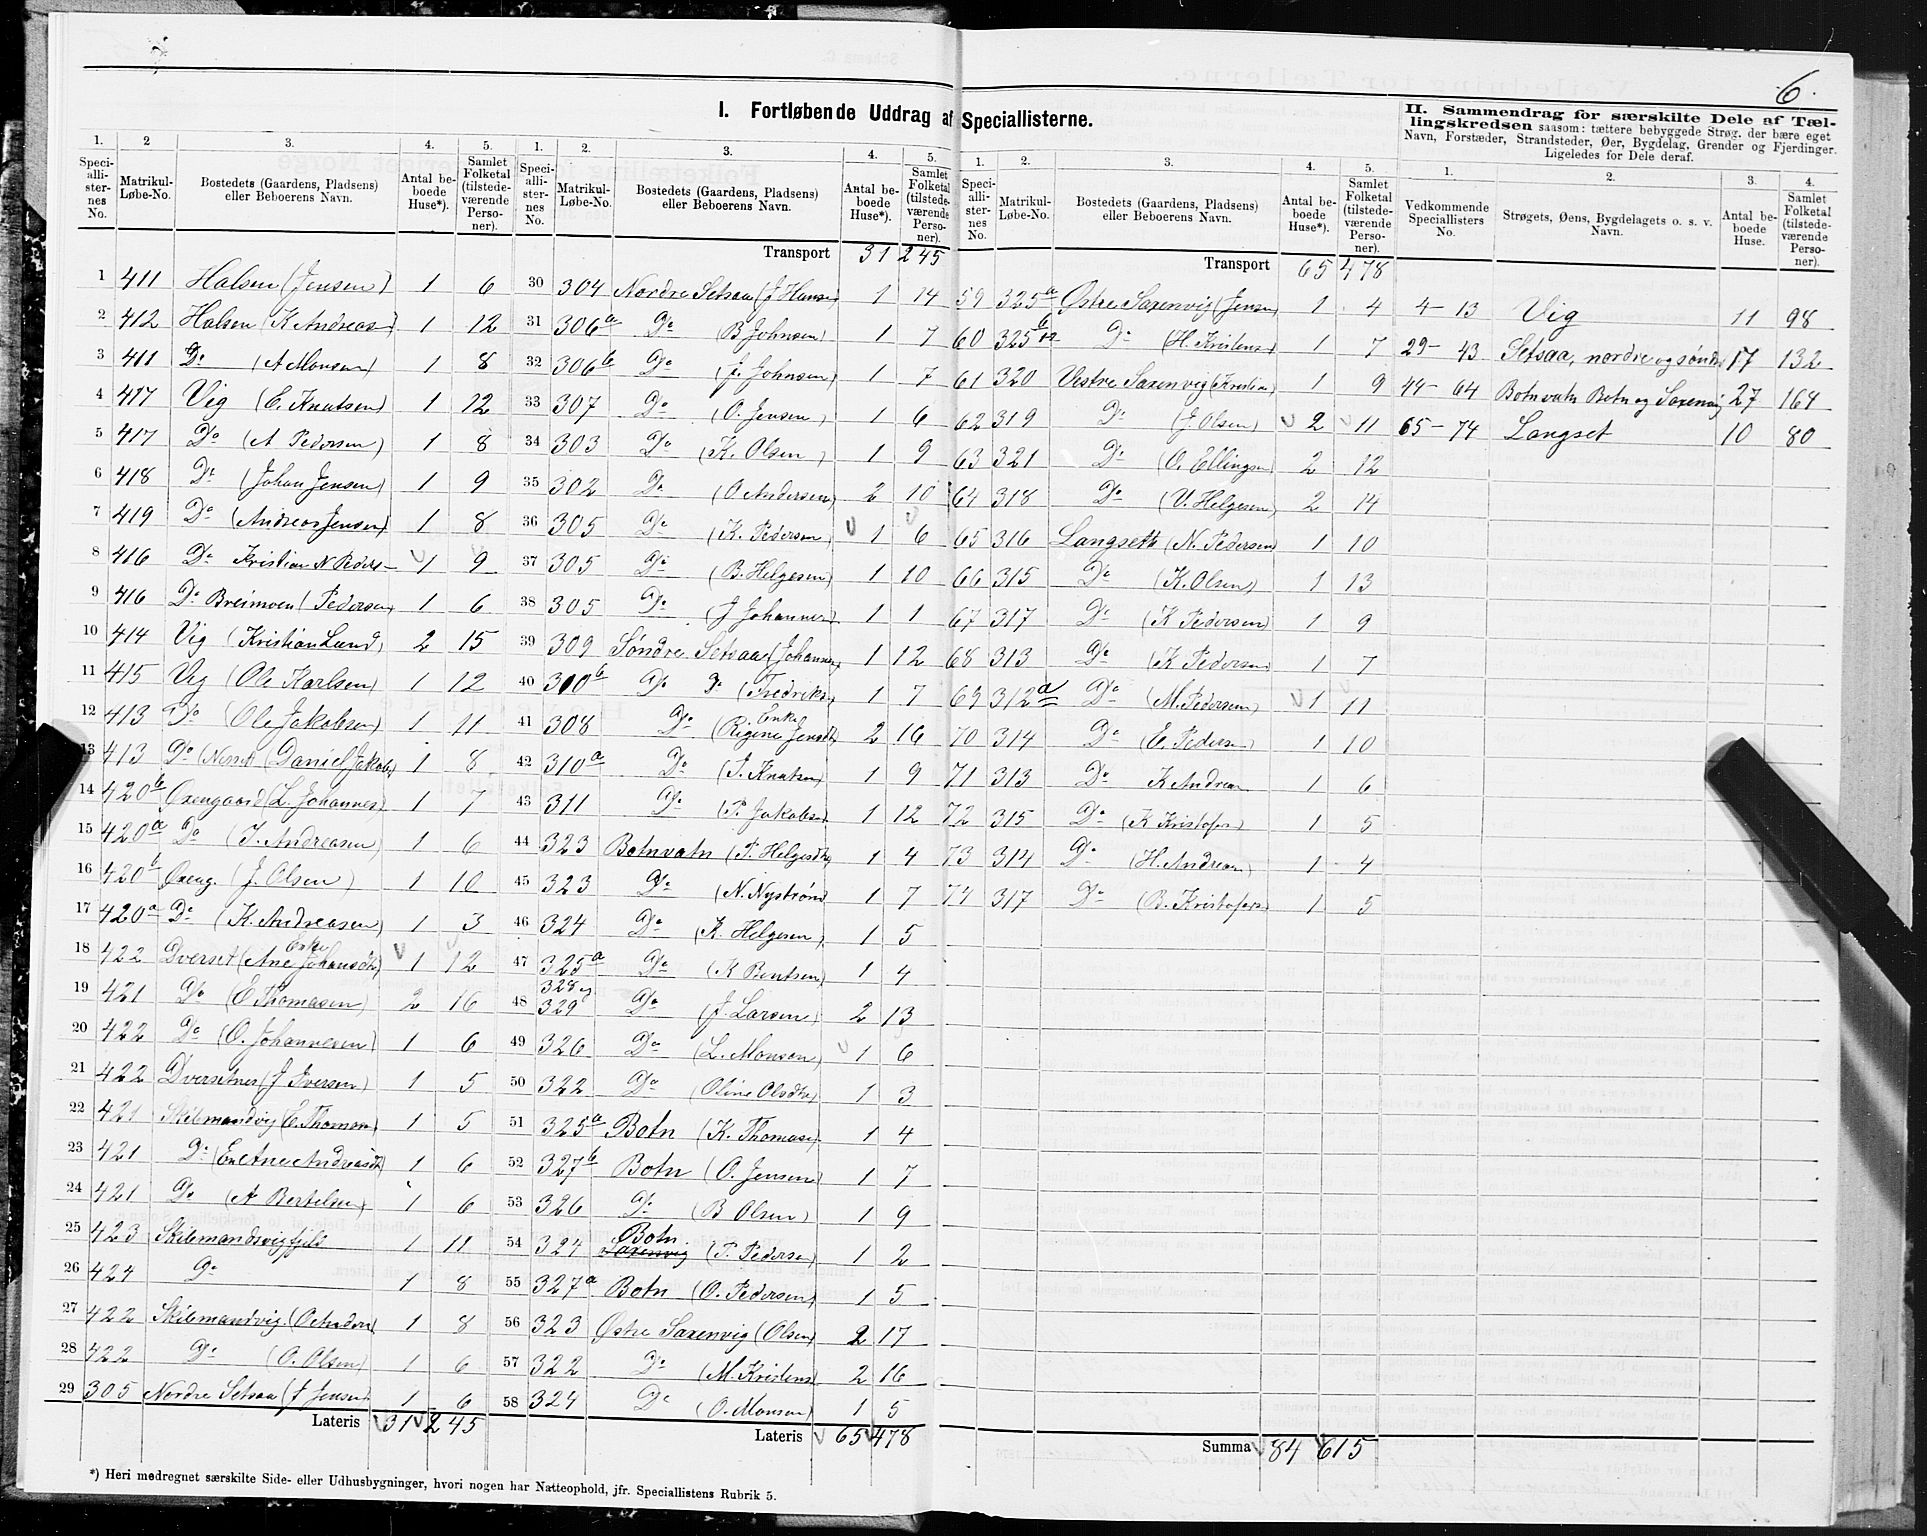 6.
I. Fortløbende Uddrag af Speciallisterne.
II. Sammendrag for særskilte Dele af Tællingskredsen saasom: tættere bebyggede Strøg, der bære eget Navn, Forstæder, Strandsteder, Øer, Bygdelag, Grender og Fjerdinger. Ligeledes for Dele deraf.
1. 2 3. 4. 5.
Speciallisternes No. Matrikul-Løbe-No. Bostedets (Gaardens, Pladsens) eller Beboerens Navn. Antal beboede Huse*). Samlet Folketal (tilstedeværende Personer).
1 411 Halsen (Jensen) 1 6
2 412 Halsen (K Andreas) 1 12
3 411 Do (A Monsen) 1 8
4 417 Vig (E. Knutsen) 1 12
5 417 Do (A Pedersen) 1 8
6 418 Do (Johan Jensen) 1 9
7 419 Do (Andreas Jensen) 1 8
8 416 Do Kristian N Peders- 1 9
9 416 Do Breimoen (Pedersen) 1 6
10 414 Vig (Kristian Lund) 2 15
11 415 Vig (Ole Karlsen) 1 12
12 413 Do (Ole Jakobsen) 1 11
13 413 Do (Nesset) (Daniel Jakobs) 1 8
14 420b Øxengaard (L. Johannes) 1 7
15 420a Do (I. Andreasen) 1 6
16 420b Øxeng. (J. Olsen) 1 10
17 420a Do (K. Andreasen) 1 3
18 422 Dverset (Enke Ane Johansdtr) 1 12
19 421 Do (E Thomasen) 2 16
20 422 Do (O. Johannesen) 1 6
21 422 Dversetnes (J Iversen) 1 5
22 421 Skilemandvig (E. Thomsen) 1 5
23 421 Do (Enke Ane Andreasdtr) 1 6
24 421 Do (A Bertelsen) 1 6
25 423 Skilemandsvigfjeld 1 11
26 424 Do 1 8
27 422 Skilemandvig. 1 8
28 422 Do (O. Olsen) 1 6
29 305 Nordre Setsaa (J Jensen) 1 6
Lateris 31 245
1. 2. 3. 4. 5.
Speciallisternes No. Matrikul-Løbe-No. Bostedets (Gaardens, Pladsens) eller Beboerens Navn. Antal beboede Huse*). Samlet Folketal (tilstedeværende Personer).
Transport 31 245
30 304 Nordre Setsaa (J Hansen) 1 14
31 306a Do (B Johnsen) 1 7
32 306b Do (J. Johnsen) 1 7
33 307 Do (O. Jensen) 1 6
34 303 Do (K. Olsen) 1 9
35 302 Do (O Andersen) 2 10
36 305 Do (K. Pedersen) 1 6
37 305 Do (B. Helgesen) 1 10
38 305 Do (J Johannes) 1 1
39 309 Søndre Setsaa (Johannes) 1 12
40 310b Do Do (Fredriks) 1 7
41 308 Do (Enke Regine Jensdtr) 2 16
42 310a Do (I. Knutsen) 1 9
43 311 Do (P. Jakobsen) 1 12
44 323 Botnvatn (P. Helgesdtr) 1 4
45 323 Do (N. Nystrøm) 1 7
46 324 Do (K. Helgesen) 1 5
47 325a Do (K Bentsen) 1 4
48 328 og 329 Do (J. Larsen) 2 13
49 326 Do (L. Monsen) 1 6
50 322 Do (Oline Olsdtr) 1 3
51 325a Botn (K. Thomas) 1 4
52 327b Botn (O. Jensen) 1 7
53 326 Do (B Olsen) 1 9
54 324 Botn Saxenvig (P. Pedersen) 1 2
55 327a Botn (O. Pedersen) 1 5
56 323 Østre Saxenvig (Olsen) 2 17
57 322 Do (M. Kristens) 2 16
58 324 Do (O. Monsen) 1 5
Lateris 65 478
1. 2. 3. 4. 5.
Speciallisternes No. Matrikul-Løbe-No. Bostedets (Gaardens, Pladsens) eller Beboerens Navn. Antal beboede Huse*). Samlet Folketal (tilstedeværende Personer).
Transport 65 478
59 325a Østre Saxenvig (Jensen) 1 4
60 325b Do (H. Kristens) 1 7
61 320 Vestre Saxenvig (Kristian) 1 9
62 319 Do (J. Olsen) 2 11
63 321 Do (O. Ellingsen) 2 12
64 318 Do (U. Helgesen) 2 14
65 316 Langseth (N. Pedersen) 1 10
66 315 Do (K. Olsen) 1 13
67 317 Do (K Pedersen) 1 9
68 313 Do (K Pedersen 1 7
69 312a Do (M. Pedersen) 1 11
70 314 Do (E. Pedersen) 1 10
71 313 Do K Andreas 1 6
72 315 Do (K Kristofers) 1 5
73 314 Do (H. Andreas) 1 4
74 317 Do (B. Kristofers) 1 5
Summa 84 615
1. 2. 3. 4.
Vedkommende Speciallisters No. Strøgets, Øens, Bygdelagets o. s. v. Navn. Antal beboede Huse. Samlet Folketal (tilstedeværende Personer).
4 - 13 Vig 11 98
29 - 43 Setsaa, nordre og søndre 17 132
44 - 64 Botnvatn Botn og Saxenvig 27 164
65 - 74 Langset 10 80
*) Heri medregnet særskilte Side- eller Udhusbygninger, hvori nogen har Natteophold, jfr. Speciallistens Rubrik 5.